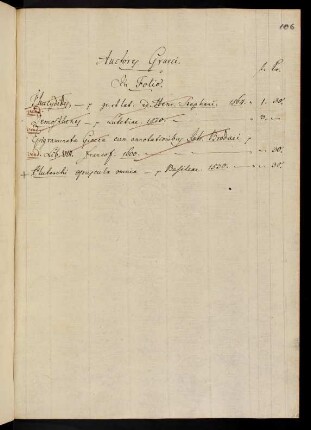 106
Auctores Graeci.
In Folio.
f. Kr.
Thucydides — gr. et lat. ed. Henr. Stephani. 1564. — 1. 30.
Demosthenes — Lutetiae 1570. — 2. —
Epigrammata Graeca cum annotationibus Joh. Brodaei
Lib. VII. Francof. 1600. — 30.
+ Plutarchi opuscula omnia — Basileae 1530. — 30.